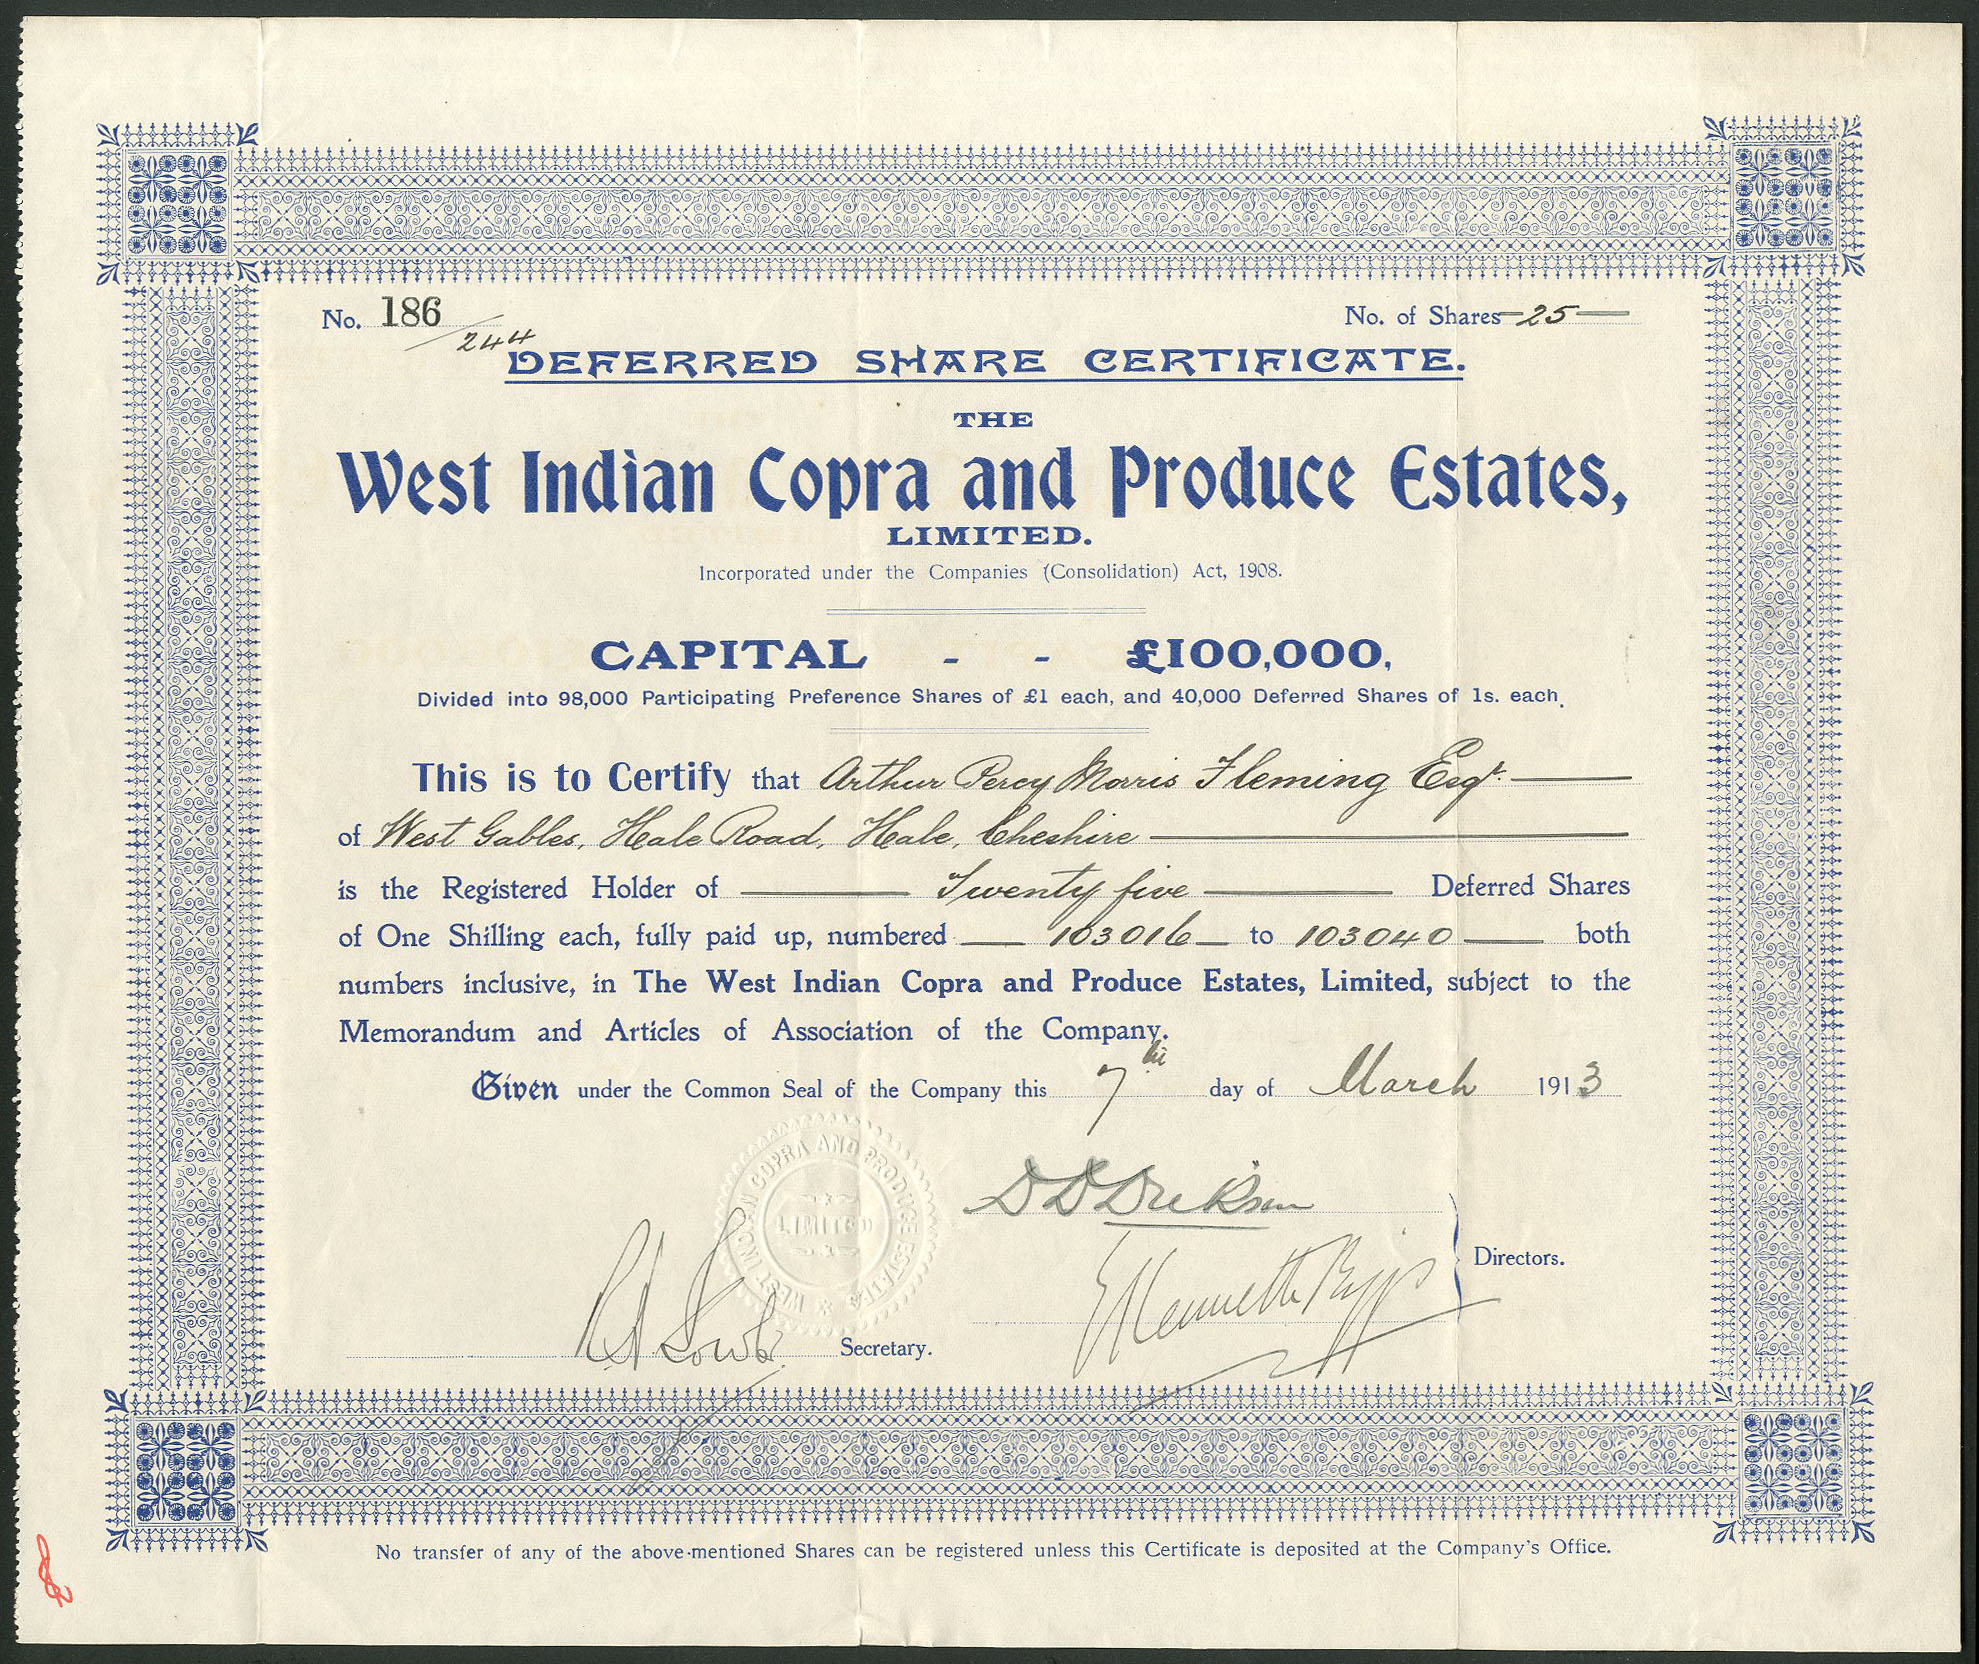 No. 186 / 244
No. of Shares 25
DEFERRED SHARE CERTIFICATE.
THE
West Indian Copra and Produce Estates,
LIMITED.
Incorporated under the Companies (Consolidation) Act, 1908.
CAPITAL - - £100,000,
Divided into 98,000 Participating Preference Shares of £1 each, and 40,000 Deferred Shares of 1s. each.
This is to Certify that Arthur Percy Morris Fleming Esqr.
of West Gables, Hale Road, Hale, Cheshire
is the Registered Holder of Twenty five Deferred Shares
of One Shilling each, fully paid up, numbered 103016 to 103040 both
numbers inclusive, in The West Indian Copra and Produce Estates, Limited, subject to the
Memorandum and Articles of Association of the Company.
Given under the Common Seal of the Company this 7th day of March 1913
WEST INDIAN COPRA AND PRODUCE ESTATES
LIMITED
D D Dickson
Kenneth
Directors.
Secretary.
No transfer of any of the above-mentioned Shares can be registered unless this Certificate is deposited at the Company's Office.